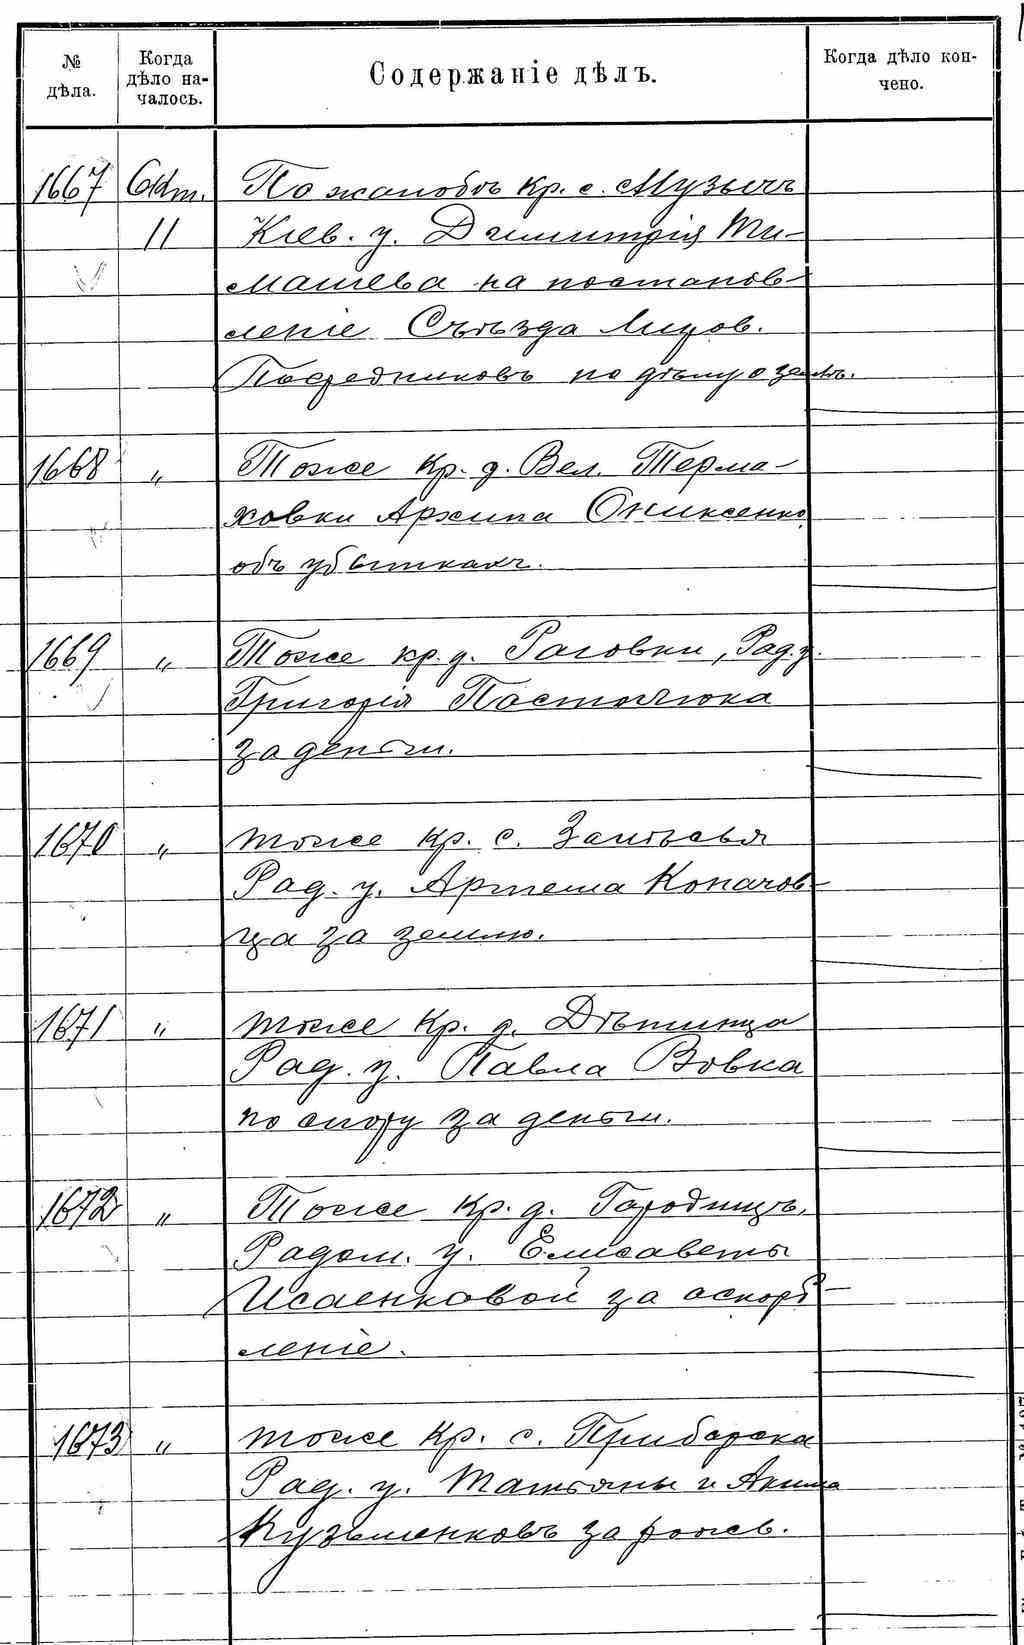 № дѣла.
Когда дѣло на-
чалось.
Содержаніе дѣлъ.
Когда дѣло кон-
чено.
1667 Окт. По жалобѣ кр. с. Музычъ
11 Кіев. у. Димитрія Ти-
машева на постанов-
леніе Съѣзда Миров.
Посредниковъ по дѣлу о землѣ.
1668 „ Тоже кр. д. Вел. Терма-
ховки Архипа Ониксенко
объ убыткахъ.
1669 „ Тоже кр. д. Раговки, Рад. у.
Григорія Постолюка
за деньги.
1670 „ тоже кр. с. Залѣсья
Рад. у. Артема Копачов-
ца за землю.
1671 „ тоже кр. д. Дѣтинца
Рад. у. Павла Вовка
по спору за деньги.
1672 „ Тоже кр. д. Городищъ,
Радом. у. Елисаветы
Исаенковой за оскорб-
леніе.
1673 „ тоже кр. с. Приборска
Рад. у. Татьяны и Акима
Кузьменковъ за рожь.